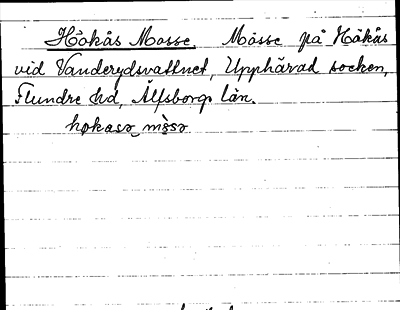 Håkås Mosse. Mosse på Håkås
vid Vanderydsvattnet, Upphärad socken,
Flundre hd, Älfsborgs län.
hokasə mòsə